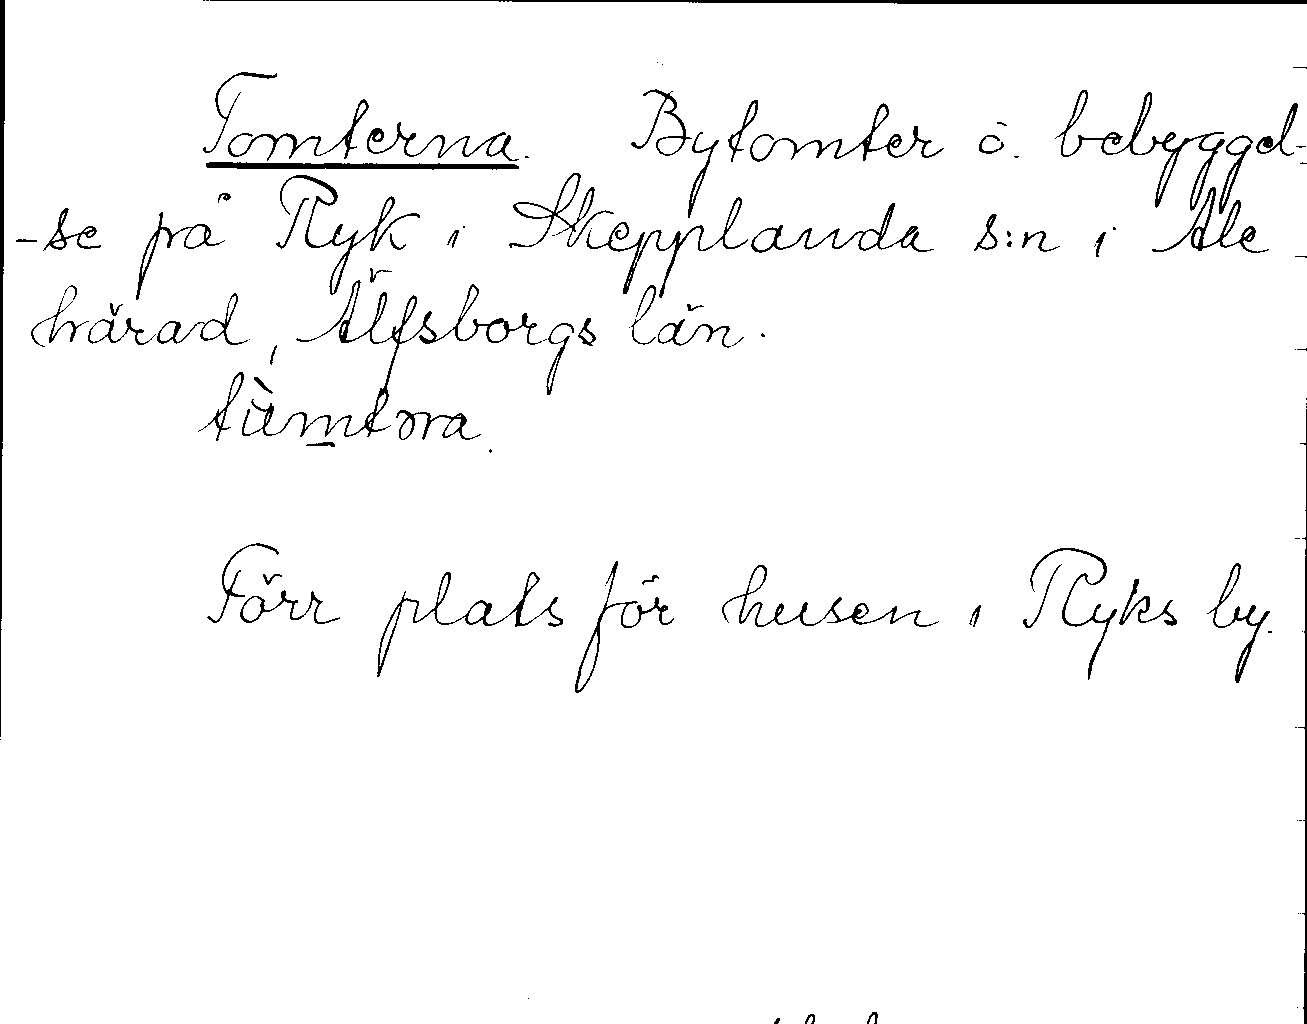 Tomterna. Bytomter o. bebyggel-
-se på Ryk i Skepplanda s:n i Ale
härad, Älfsborgs län.
tùmtɔra.
Förr plats för husen i Ryks by.